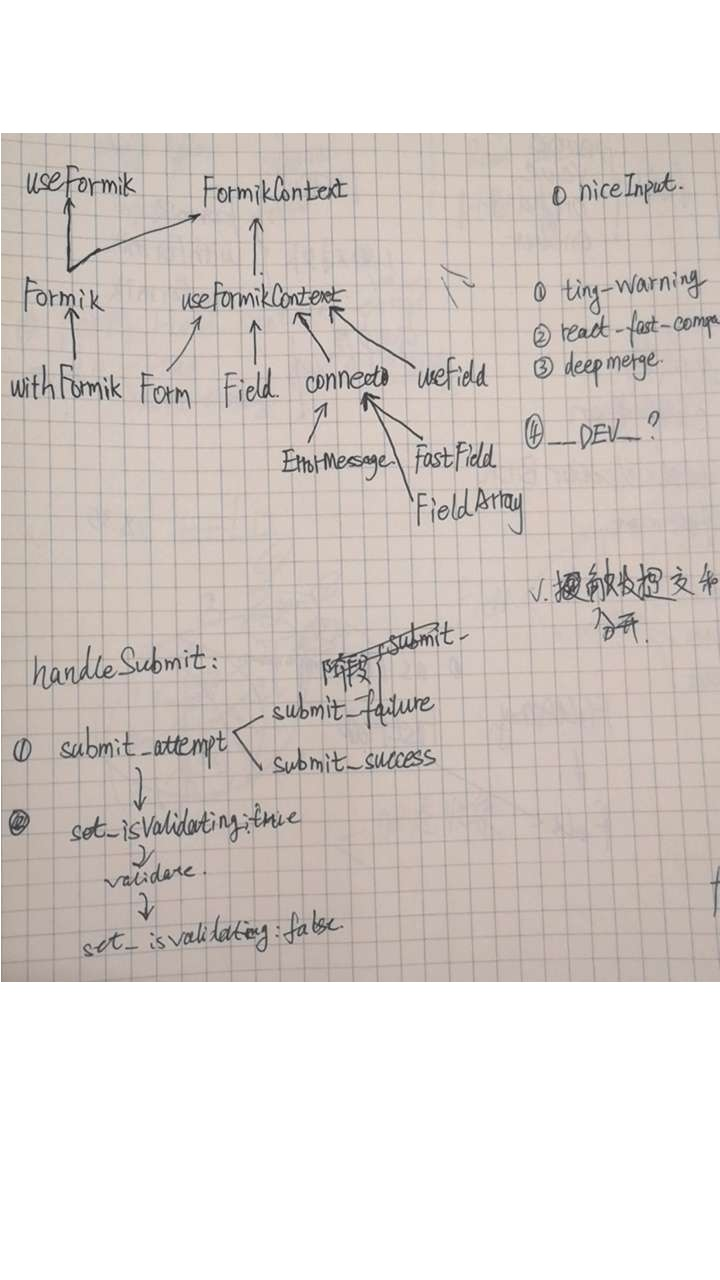 useFormik
FormikContext
① niceInput.
Formik
useFormikContext
① ting-warning
② react-fast-compa
③ deepmerge.
withFormik
Form
Field.
connect
useField
④ __DEV__?
ErrorMessage.
FastField
FieldArray
handleSubmit:
阶段
submit_
submit_failure
① submit_attempt
submit_success
② set_isValidating:true
validare.
set_isvalidating:false.